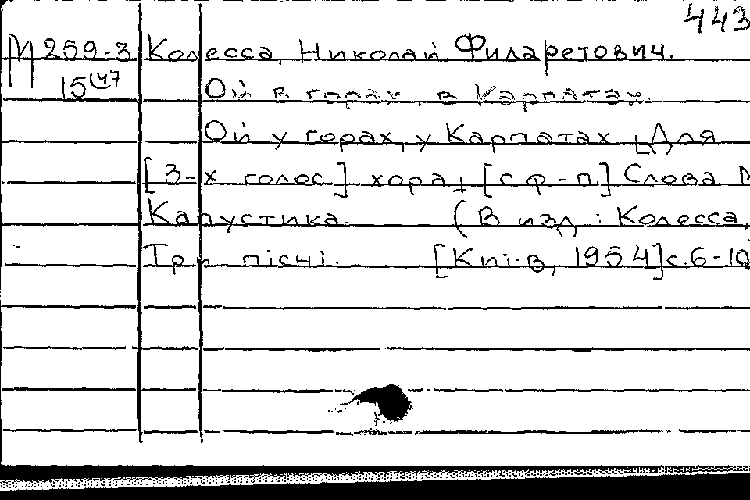 443
М 259-3 Колесса, Николай Филаретович.
15(47 Ой в горах, в Карпатах.
Ой у горах, у Карпатах. Для
[3-х голос] хора, [с ф-п] Слова
Капустика. (В изд.: Колесса,
Три пісні. [Киів, 1954] с. 6-10